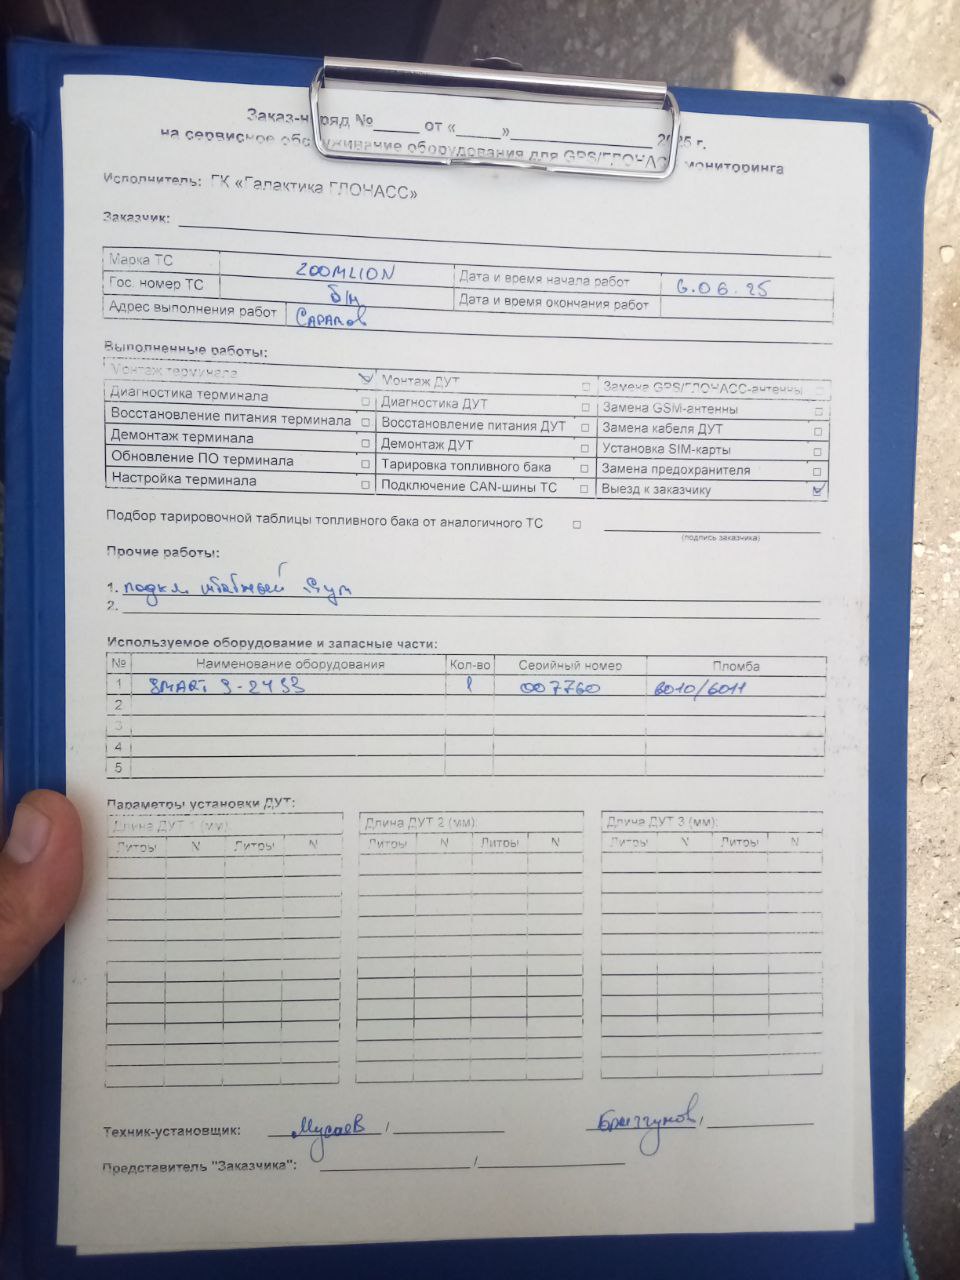 Заказ-наряд №_____ от «_____»_______________ 2025 г.
на сервисное обслуживание оборудования для GPS/ГЛОНАСС мониторинга
Исполнитель: ГК «Галактика ГЛОНАСС»
Заказчик:
Марка ТС ZOOMLION Дата и время начала работ 6.06.25
Гос. номер ТС б/н Дата и время окончания работ
Адрес выполнения работ
Выполненные работы:
Монтаж терминала ☑ Монтаж ДУТ □ Замена GPS/ГЛОНАСС-антенны □
Диагностика терминала □ Диагностика ДУТ □ Замена GSM-антенны □
Восстановление питания терминала □ Восстановление питания ДУТ □ Замена кабеля ДУТ □
Демонтаж терминала □ Демонтаж ДУТ □ Установка SIM-карты □
Обновление ПО терминала □ Тарировка топливного бака □ Замена предохранителя □
Настройка терминала □ Подключение CAN-шины ТС □ Выезд к заказчику ☑
Подбор тарировочной таблицы топливного бака от аналогичного ТС □
(подпись заказчика)
Прочие работы:
1. подкл штатный дут
2.
Используемое оборудование и запасные части:
№ Наименование оборудования Кол-во Серийный номер Пломба
1 SMART S-2433 1 007760 6010/6011
2
3
4
5
Параметры установки ДУТ:
Длина ДУТ 1 (мм): Длина ДУТ 2 (мм): Длина ДУТ 3 (мм):
Литры N Литры N Литры N Литры N Литры N Литры N
Техник-установщик: Мусаев /
Представитель "Заказчика": /